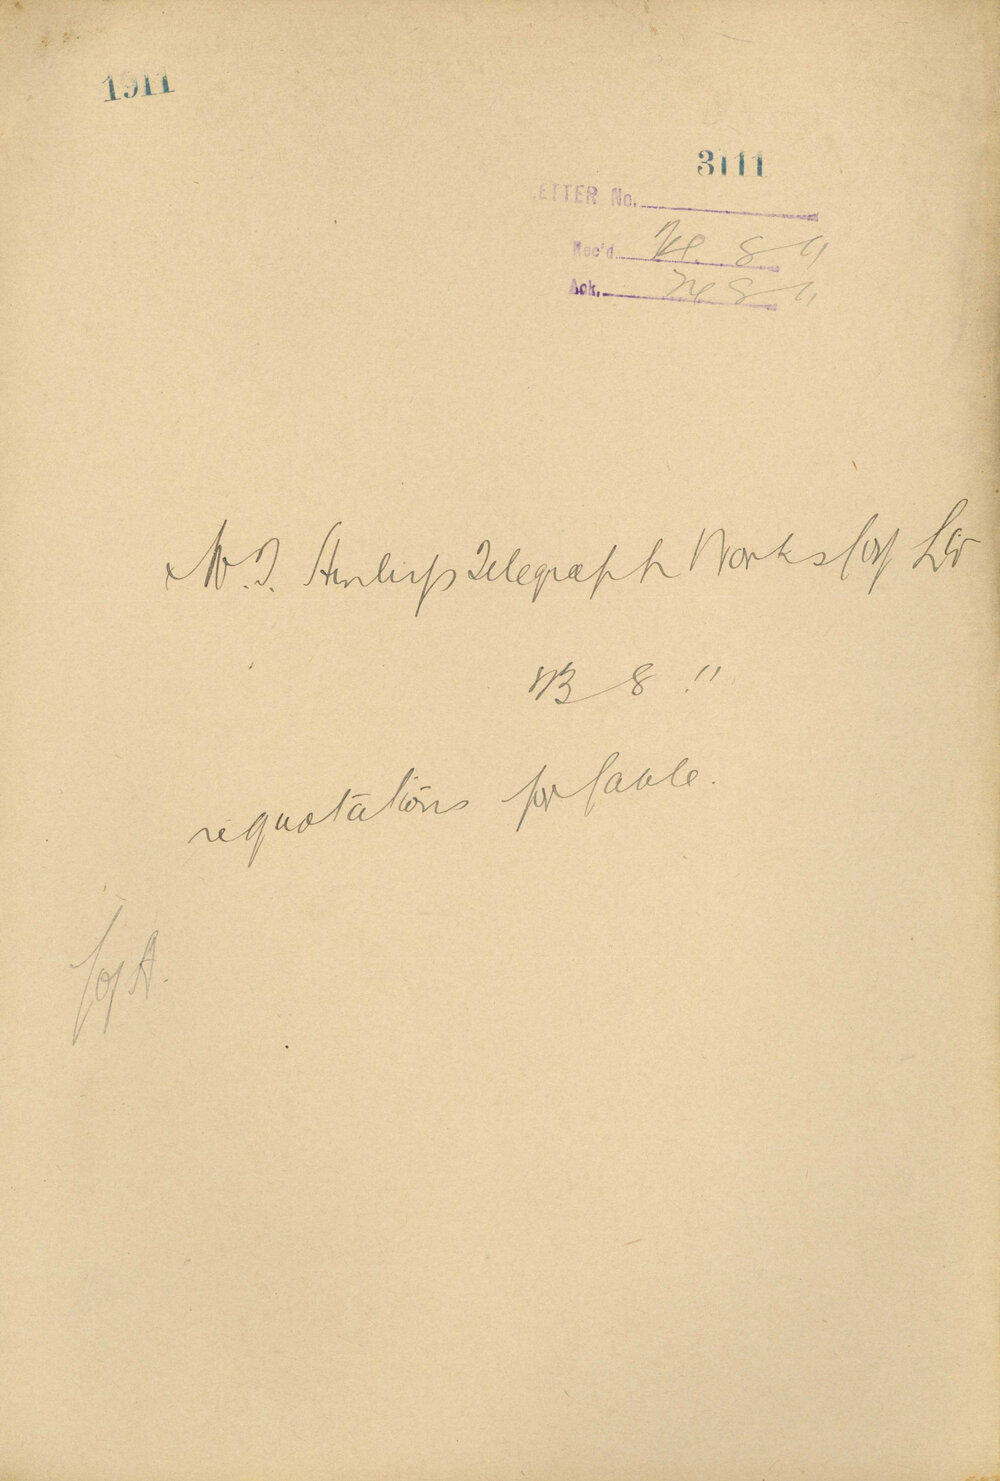 1911
3111
LETTER No.
Rec'd 24. 8 11
Ack. 24 8 11
W. T. Henley's Telegraph Works Coy Ltd
23 8 11
re quotations for Cable.